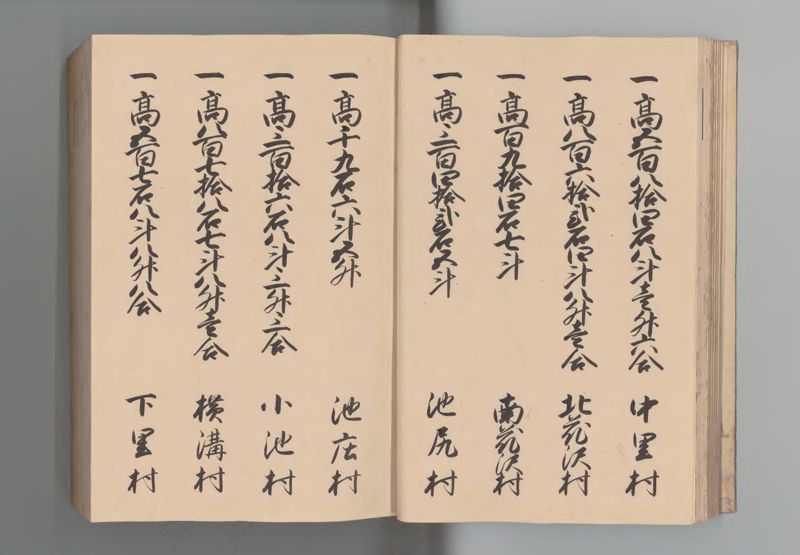 一高五百八拾四石八斗壱升六合 中里村
一高八百六拾弐石四斗八升壱合 北花沢村
一高百九拾四石七斗 南花沢村
一高三百四拾弐石五斗 池尻村
一高千九石六斗五升 池庄村
一高三百拾六石八斗三升三合 小池村
一高八百七拾八石七斗八升壱合 横溝村
一高五百七石八斗八升八合 下里村